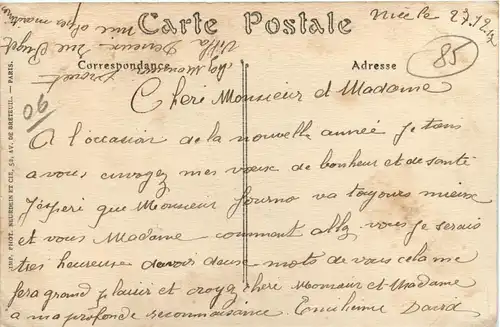 Carte Postale
Nice le 23.12.
85
Correspondance
Adresse
06
Cheré Monsieur et Madame
A l'occasion de la nouvelle année je tans
a vous envoyez mes vœux de bonheur et de santé
J'esperé que Monsieur Journo va toujours mieux
et vous Madame comment allez vous je serais
tres heureuse davoir deuse mots de vous cela me
fera grand plaisir et croyez chere Monsieur et Madame
a ma profonde reconnaissance. David
IMP. PHOT. NEURDEIN ET CIE, 52, AV. DE BRETEUIL — PARIS.
chez Monsieur
Villa